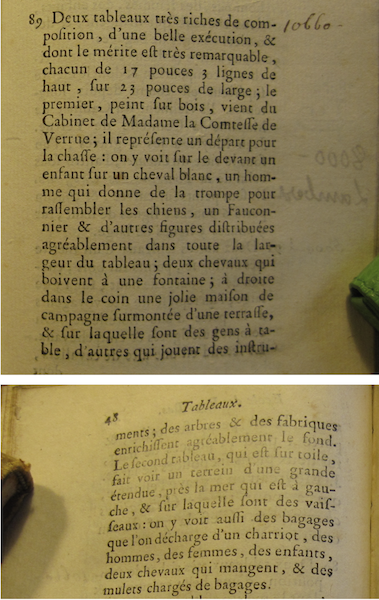 89 Deux tableaux très riches de com- 10660-
position, d'une belle exécution, &
dont le mérite est très remarquable,
chacun de 17 pouces 3 lignes de
haut, sur 23 pouces de large; le
premier, peint sur bois, vient du
Cabinet de Madame la Comtesse de
Verrue; il représente un départ pour
la chasse: on y voit sur le devant un
enfant sur un cheval blanc, un hom-
me qui donne de la trompe pour
rassembler les chiens, un Faucon-
nier & d'autres figures distribuées
agréablement dans toute la lar-
geur du tableau; deux chevaux qui
boivent à une fontaine; à droite
dans le coin une jolie maison de
campagne surmontée d'une terrasse,
& sur laquelle sont des gens à ta-
ble, d'autres qui jouent des instru-
48 Tableaux.
ments; des arbres & des fabriques
enrichissent agréablement le fond.
Le second tableau, qui est sur toile,
fait voir un terrein d'une grande
étendue, près la mer qui est à gau-
che, & sur laquelle sont des vais-
seaux: on y voit aussi des bagages
que l'on décharge d'un charriot, des
hommes, des femmes, des enfants,
deux chevaux qui mangent, & des
mulets chargés de bagages.